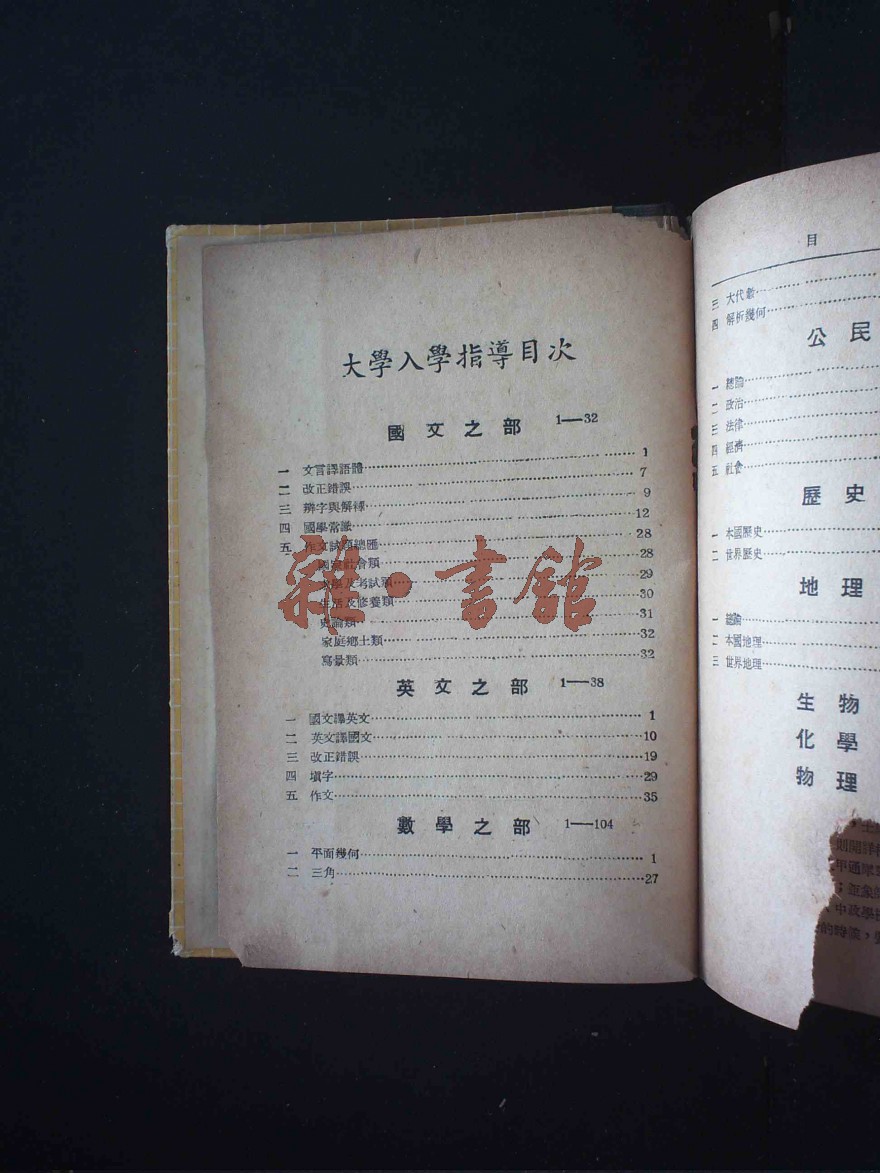 大學入學指導目次
國文之部 1—32
一 文言譯語體 1
二 改正錯誤 7
三 辨字與解釋 9
四 國學常識 12
五 作文試題總匯 28
國家社會類 28
及考試類 29
生活及修養類 30
史論類 31
家庭鄉土類 32
寫景類 32
英文之部 1—38
一 國文譯英文 1
二 英文譯國文 10
三 改正錯誤 19
四 填字 29
五 作文 35
數學之部 1—104
一 平面幾何 1
二 三角 27
雜·書館
目
三 大代數
四 解析幾何
公民
一 總論
二 政治
三 法律
四 經濟
五 社會
歷史
一 本國歷史
二 世界歷史
地理
一 總論
二 本國地理
三 世界地理
生物
化學
物理
中政學
的時候，